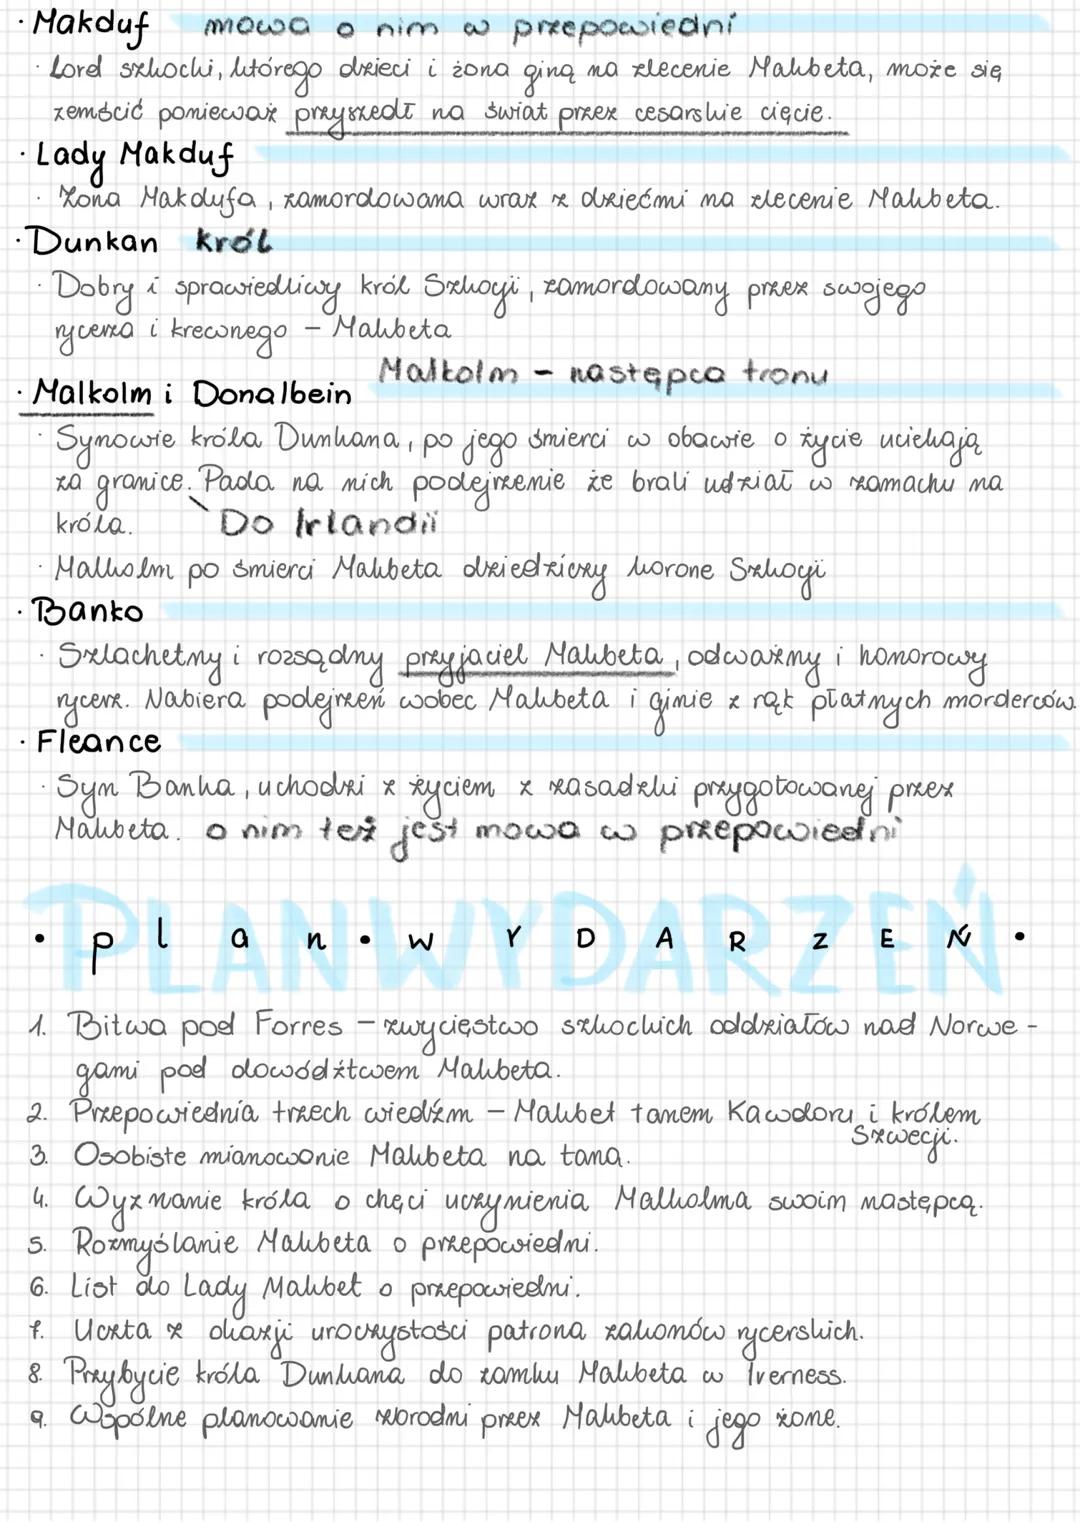 · Makduf mowa o nim w przepowiedni
· Lord szkocki, którego dzieci i żona giną na zlecenie Makbeta, może się
zemścić ponieważ przyszedł na świat przez cesarskie cięcie.
· Lady Makduf
· Żona Makdufa, zamordowana wraz z dziećmi na zlecenie Makbeta.
· Dunkan król
· Dobry i sprawiedliwy król Szkocji, zamordowany przez swojego
rycerza i krewnego – Makbeta
Malkolm – następca tronu
· Malkolm i Donalbein
· Synowie króla Dunkana, po jego śmierci w obawie o życie uciekają
za granice. Pada na nich podejrzenie że brali udział w zamachu na
króla. Do Irlandii
· Malkolm po śmierci Makbeta dziedziczy korone Szkocji
· Banko
· Szlachetny i rozsądny przyjaciel Makbeta, odważny i honorowy
rycerz. Nabiera podejrzeń wobec Makbeta i ginie z rąk płatnych morderców.
· Fleance
· Syn Banka, uchodzi z życiem z zasadzki przygotowanej przez
Makbeta. o nim też jest mowa w przepowiedni
PLAN WYDARZEŃ
• plan • WYDARZEŃ •
1. Bitwa pod Forres – zwycięstwo szkockich oddziałów nad Norwe -
gami pod dowództwem Makbeta.
2. Przepowiednia trzech wiedźm – Makbet tanem Kawdoru i królem
Szwecji.
3. Osobiste mianowanie Makbeta na tana.
4. Wyznanie króla o chęci uczynienia Malkolma swoim następcą.
5. Rozmyślanie Makbeta o przepowiedni.
6. List do Lady Makbet o przepowiedni.
7. Uczta z okazji uroczystości patrona zakonów rycerskich.
8. Przybycie króla Dunkana do zamku Makbeta w Iverness.
9. Wspólne planowanie zbrodni przez Makbeta i jego żone.